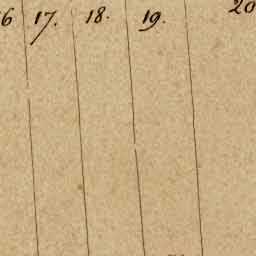 6 17. 18. 19. 20